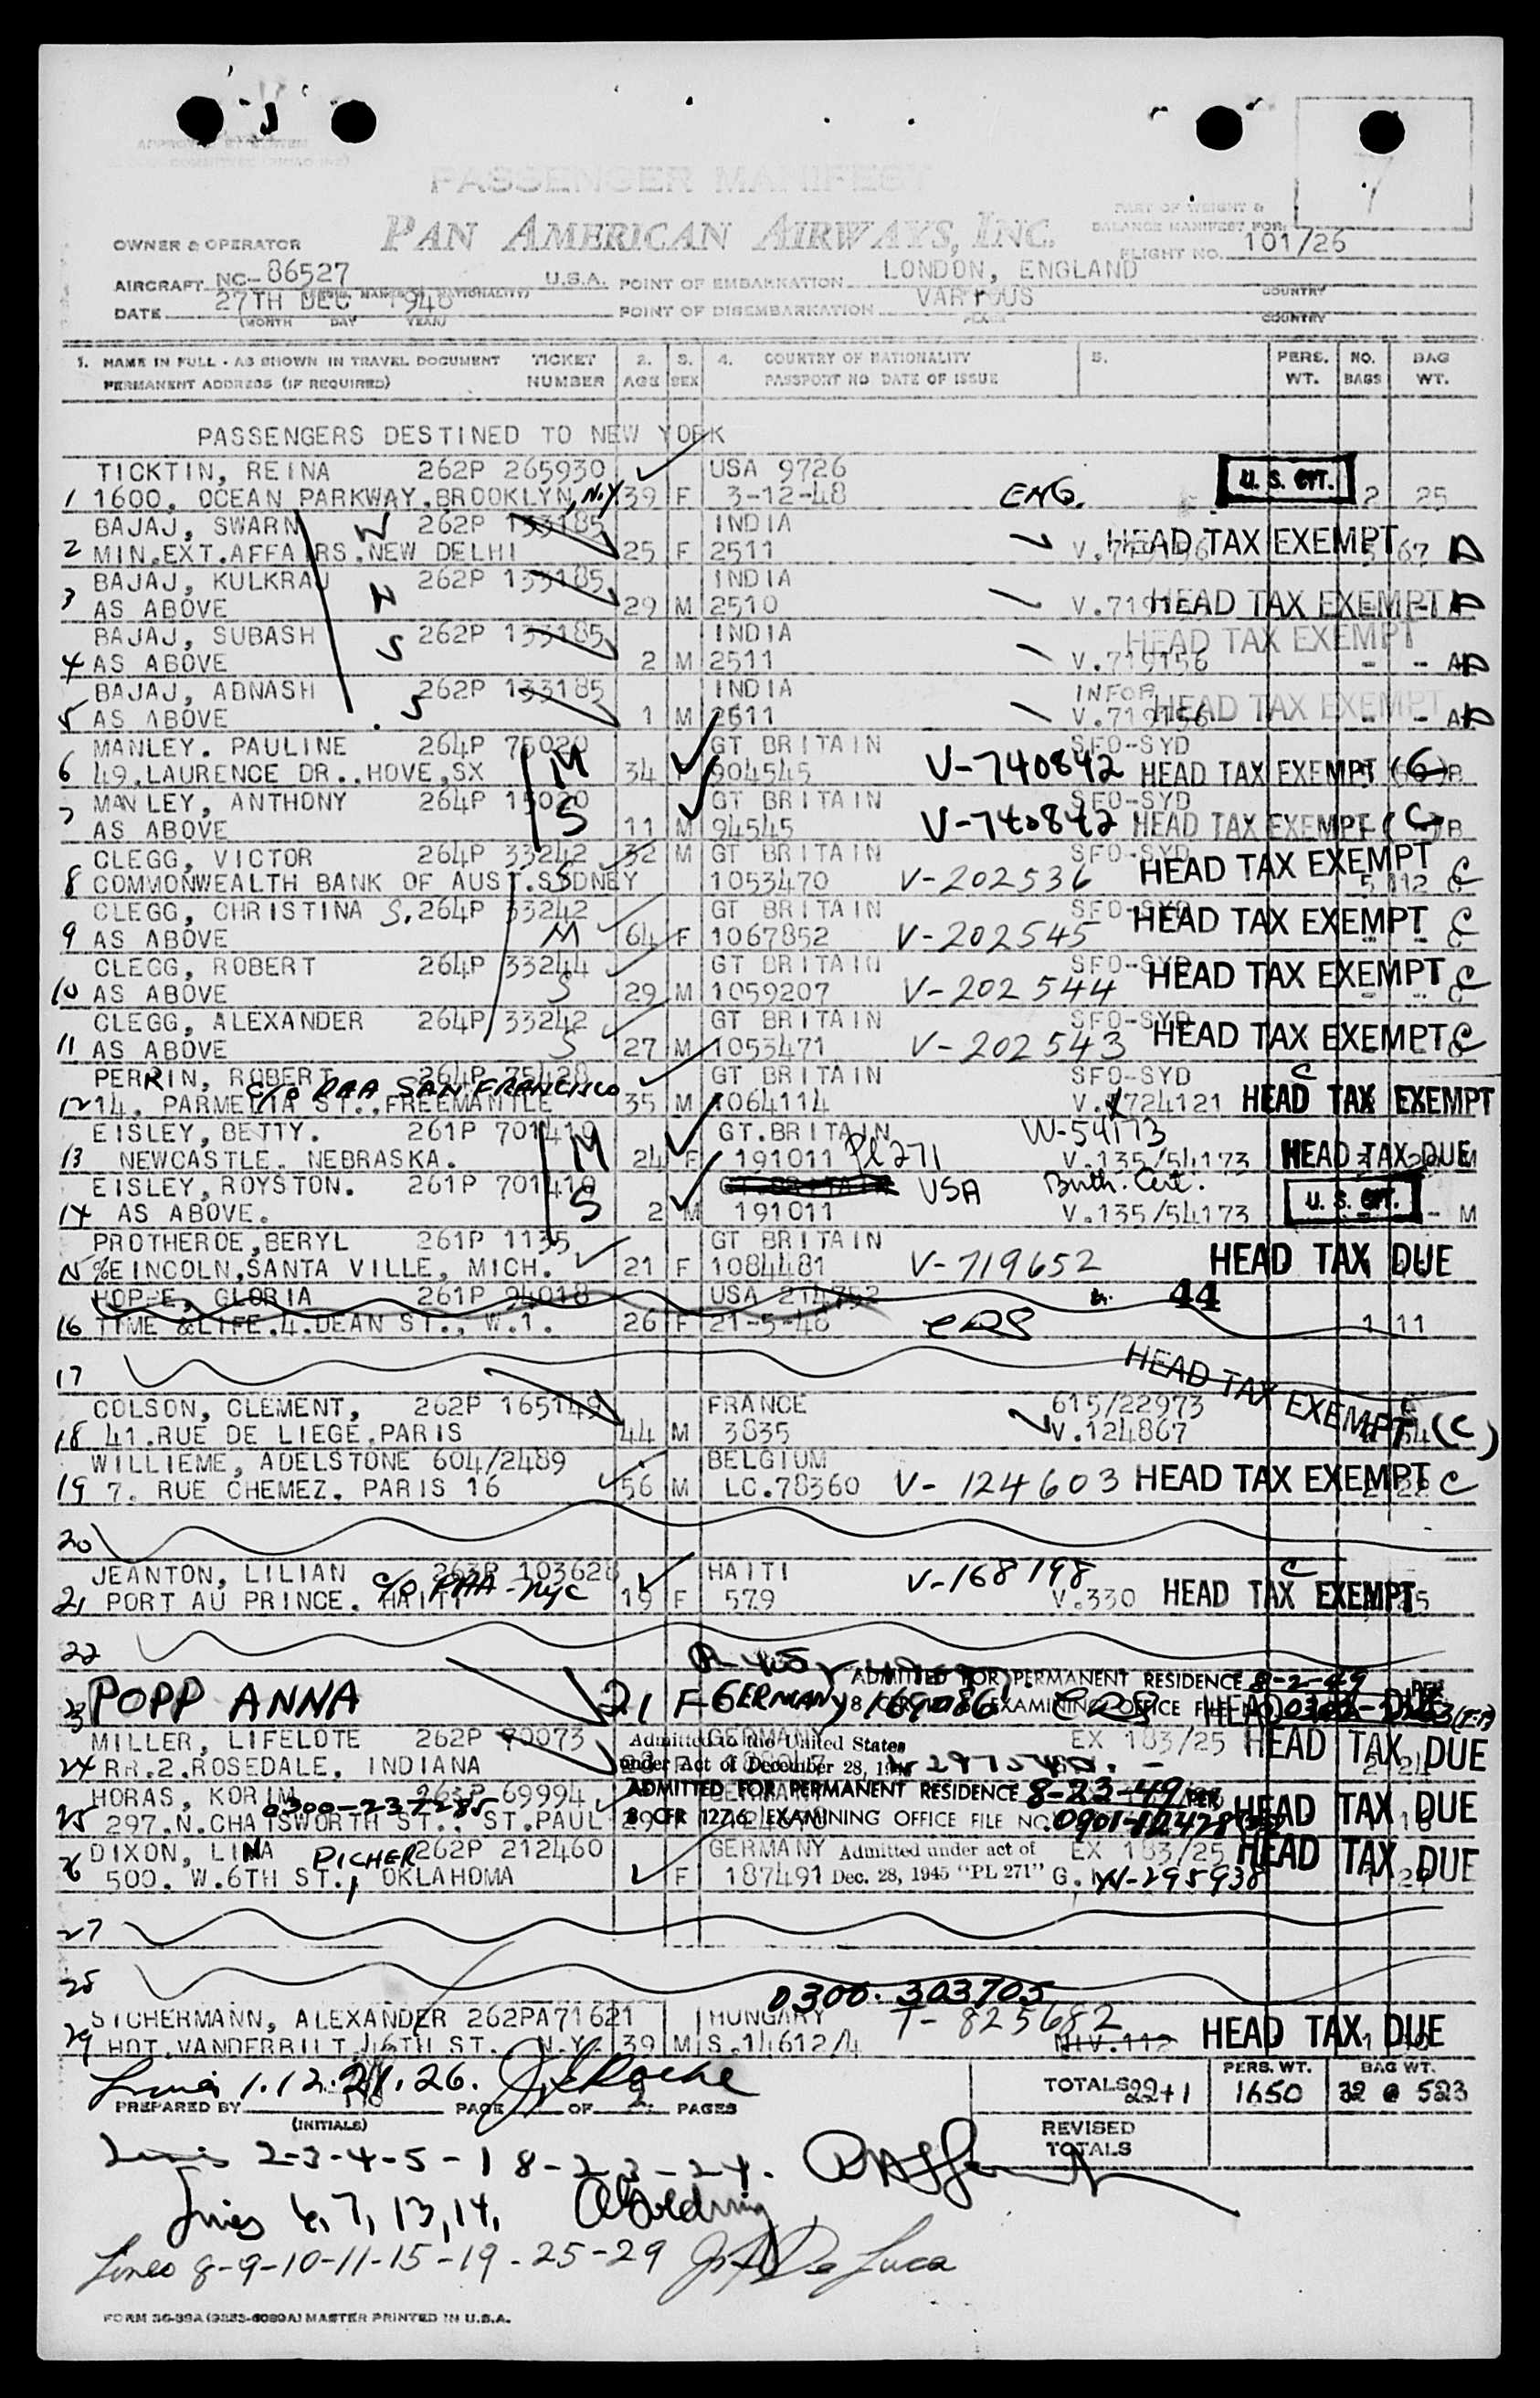 PASSENGER MANIFEST
PAN AMERICAN AIRWAYS, INC.
PART OF WEIGHT &
BALANCE MANIFEST FOR
OWNER & OPERATOR
FLIGHT NO. 101/26
AIRCRAFT NC-86527 U.S.A. POINT OF EMBARKATION LONDON, ENGLAND
COUNTRY
DATE 27TH DEC 1948 POINT OF DISEMBARKATION VARIOUS
(MONTH DAY YEAR) PLACE COUNTRY
1. NAME IN FULL - AS SHOWN IN TRAVEL DOCUMENT TICKET 2. 3. 4. COUNTRY OF NATIONALITY 5. PERS. NO. BAG
PERMANENT ADDRESS (IF REQUIRED) NUMBER AGE SEX PASSPORT NO DATE OF ISSUE WT. BAGS WT.
PASSENGERS DESTINED TO NEW YORK
TICKTIN, REINA 262P 265930 USA 9726 U. S. CIT.
1 1600, OCEAN PARKWAY.BROOKLYN, N.Y 39 F 3-12-48 ENG. 2 25
BAJAJ, SWARN W 262P 133185 INDIA HEAD TAX EXEMPT
2 MIN.EXT.AFFAIRS.NEW DELHI 25 F 2511 67
BAJAJ, KULKRAJ 262P 133185 INDIA
3 AS ABOVE 29 M 2510 HEAD TAX EXEMPT
BAJAJ, SUBASH S 262P 133185 INDIA HEAD TAX EXEMPT
4 AS ABOVE 2 M 2511 V.719156 - -
BAJAJ, ADNASH S 262P 133185 INDIA
5 AS ABOVE 1 M 2511 V.719156 HEAD TAX EXEMPT - -
MANLEY. PAULINE 264P 75020 M GT BRITAIN SFO-SYD
6 49.LAURENCE DR..HOVE.SX 34 904545 V-740842 HEAD TAX EXEMPT
MANLEY, ANTHONY 264P 15020 S GT BRITAIN SFO-SYD
7 AS ABOVE 11 M 94545 V-740842 HEAD TAX EXEMPT
CLEGG, VICTOR 264P 33242 32 M GT BRITAIN SFO-SYD HEAD TAX EXEMPT
8 COMMONWEALTH BANK OF AUST.SYDNEY 1053470 V-202536 5 112 C
CLEGG, CHRISTINA S. 264P 33242 GT BRITAIN SFO-SYD HEAD TAX EXEMPT
9 AS ABOVE M 64 F 1067852 V-202545 C
CLEGG, ROBERT 264P 33244 GT BRITAIN SFO-SYD HEAD TAX EXEMPT
10 AS ABOVE S 29 M 1059207 V-202544 C
CLEGG, ALEXANDER 264P 33242 GT BRITAIN SFO-SYD HEAD TAX EXEMPT
11 AS ABOVE S 27 M 1053471 V-202543 C
PERRIN, ROBERT 264P 75428 GT BRITAIN SFO-SYD C
C/O PAA SAN FRANCISCO
12 14. PARMELIA ST.,FREEMANTLE 35 M 1064114 V.724121 HEAD TAX EXEMPT
EISLEY, BETTY. 261P 701410 M GT.BRITAIN W-54173
13 NEWCASTLE. NEBRASKA. 24 F 191011 PL271 V.135/54173 HEAD TAX DUE M
EISLEY, ROYSTON. 261P 701410 S GT.BRITAIN USA Birth. Cert.
14 AS ABOVE. 2 M 191011 V.135/54173 U. S. CIT. - M
PROTHEROE,BERYL 261P 1135 GT BRITAIN
15 21 F 1084481 V-719652 HEAD TAX DUE
HOPPE, GLORIA 261P 94018 USA 214752 44
16 TIME &LIFE.4.DEAN ST., W.1. 26 F 21-5-48 1 11
17
COLSON, CLEMENT, 262P 165149 FRANCE 615/22973 HEAD TAX EXEMPT
18 41.RUE DE LIEGE.PARIS 44 M 3835 V.124867 (C)
WILLIEME, ADELSTONE 604/2489 BELGIUM
19 7. RUE CHEMEZ. PARIS 16 56 M LC.78360 V-124603 HEAD TAX EXEMPT C
20
JEANTON, LILIAN 263P 103628 HAITI V-168198 C
C/O PAA-NYC
21 PORT AU PRINCE. HAITI 19 F 579 V.330 HEAD TAX EXEMPT
22
ADMITTED FOR PERMANENT RESIDENCE 8-2-49
23 POPP ANNA 21 F GERMANY 169086 EXAMINING OFFICE
MILLER, LIFELOTE 262P 70073 Admitted to the United States EX 183/25 HEAD TAX DUE
24 RR.2.ROSEDALE. INDIANA under Act of December 28, 1945
HORAS, KORIM 263P 69994 ADMITTED FOR PERMANENT RESIDENCE 8-23-49 HEAD TAX DUE
0300-237285
25 297.N.CHATSWORTH ST.. ST.PAUL 8 CFR 127.6 EXAMINING OFFICE FILE NO.
DIXON, LINA PICHER 262P 212460 GERMANY Admitted under act of EX 183/25 HEAD TAX DUE
26 500. W.6TH ST., OKLAHOMA F 187491 Dec. 28, 1945 "PL 271" W-295938
27
28
0300-303705
SICHERMANN, ALEXANDER 262PA71621 HUNGARY T-825682
29 HOT.VANDERBILT.46TH ST. N.Y. 39 M S.14612/4 NIV.112 HEAD TAX DUE
Lines 1.12.21.26.
PREPARED BY PAGE OF 2 PAGES
(INITIALS)
TOTALS 22+1 PERS. WT. 1650 BAG WT. 32 @ 523
REVISED
TOTALS
Lines 2-3-4-5-18-23-24.
Lines 6, 7, 13, 14. Golding
Lines 8-9-10-11-15-19-25-29 De Luca
FORM SG-39A (9383-6080A) MASTER PRINTED IN U.S.A.